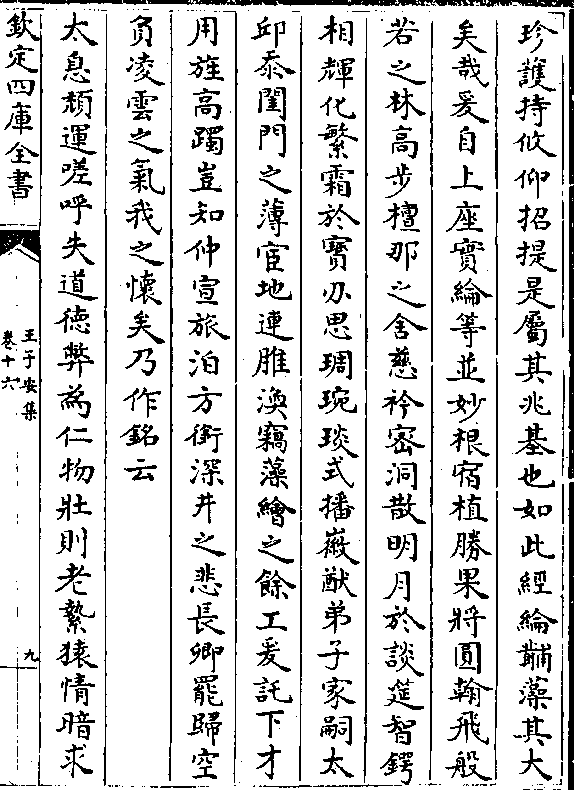 珍護持攸仰招提是屬其兆基也如此經綸黼藻其大
矣哉爰自上座寳綸等並妙根宿植勝果將圓翰飛般
若之林高步檀那之舍慈衿密洞散明月於談筵智鍔
相輝化繁霜於寳刃思琱琬琰式播徽猷弟子家嗣太
邱泰閨門之薄宦地連脽渙竊藻繪之餘工爰託下才
用旌高躅豈知仲宣旅泊方銜深井之悲長卿罷歸空
負凌雲之氣我之懷矣乃作銘云
太息頽運嗟呼失道德弊為仁物壯則老縶猿情暗求
欽定四庫全書
王子安集
卷十六
九